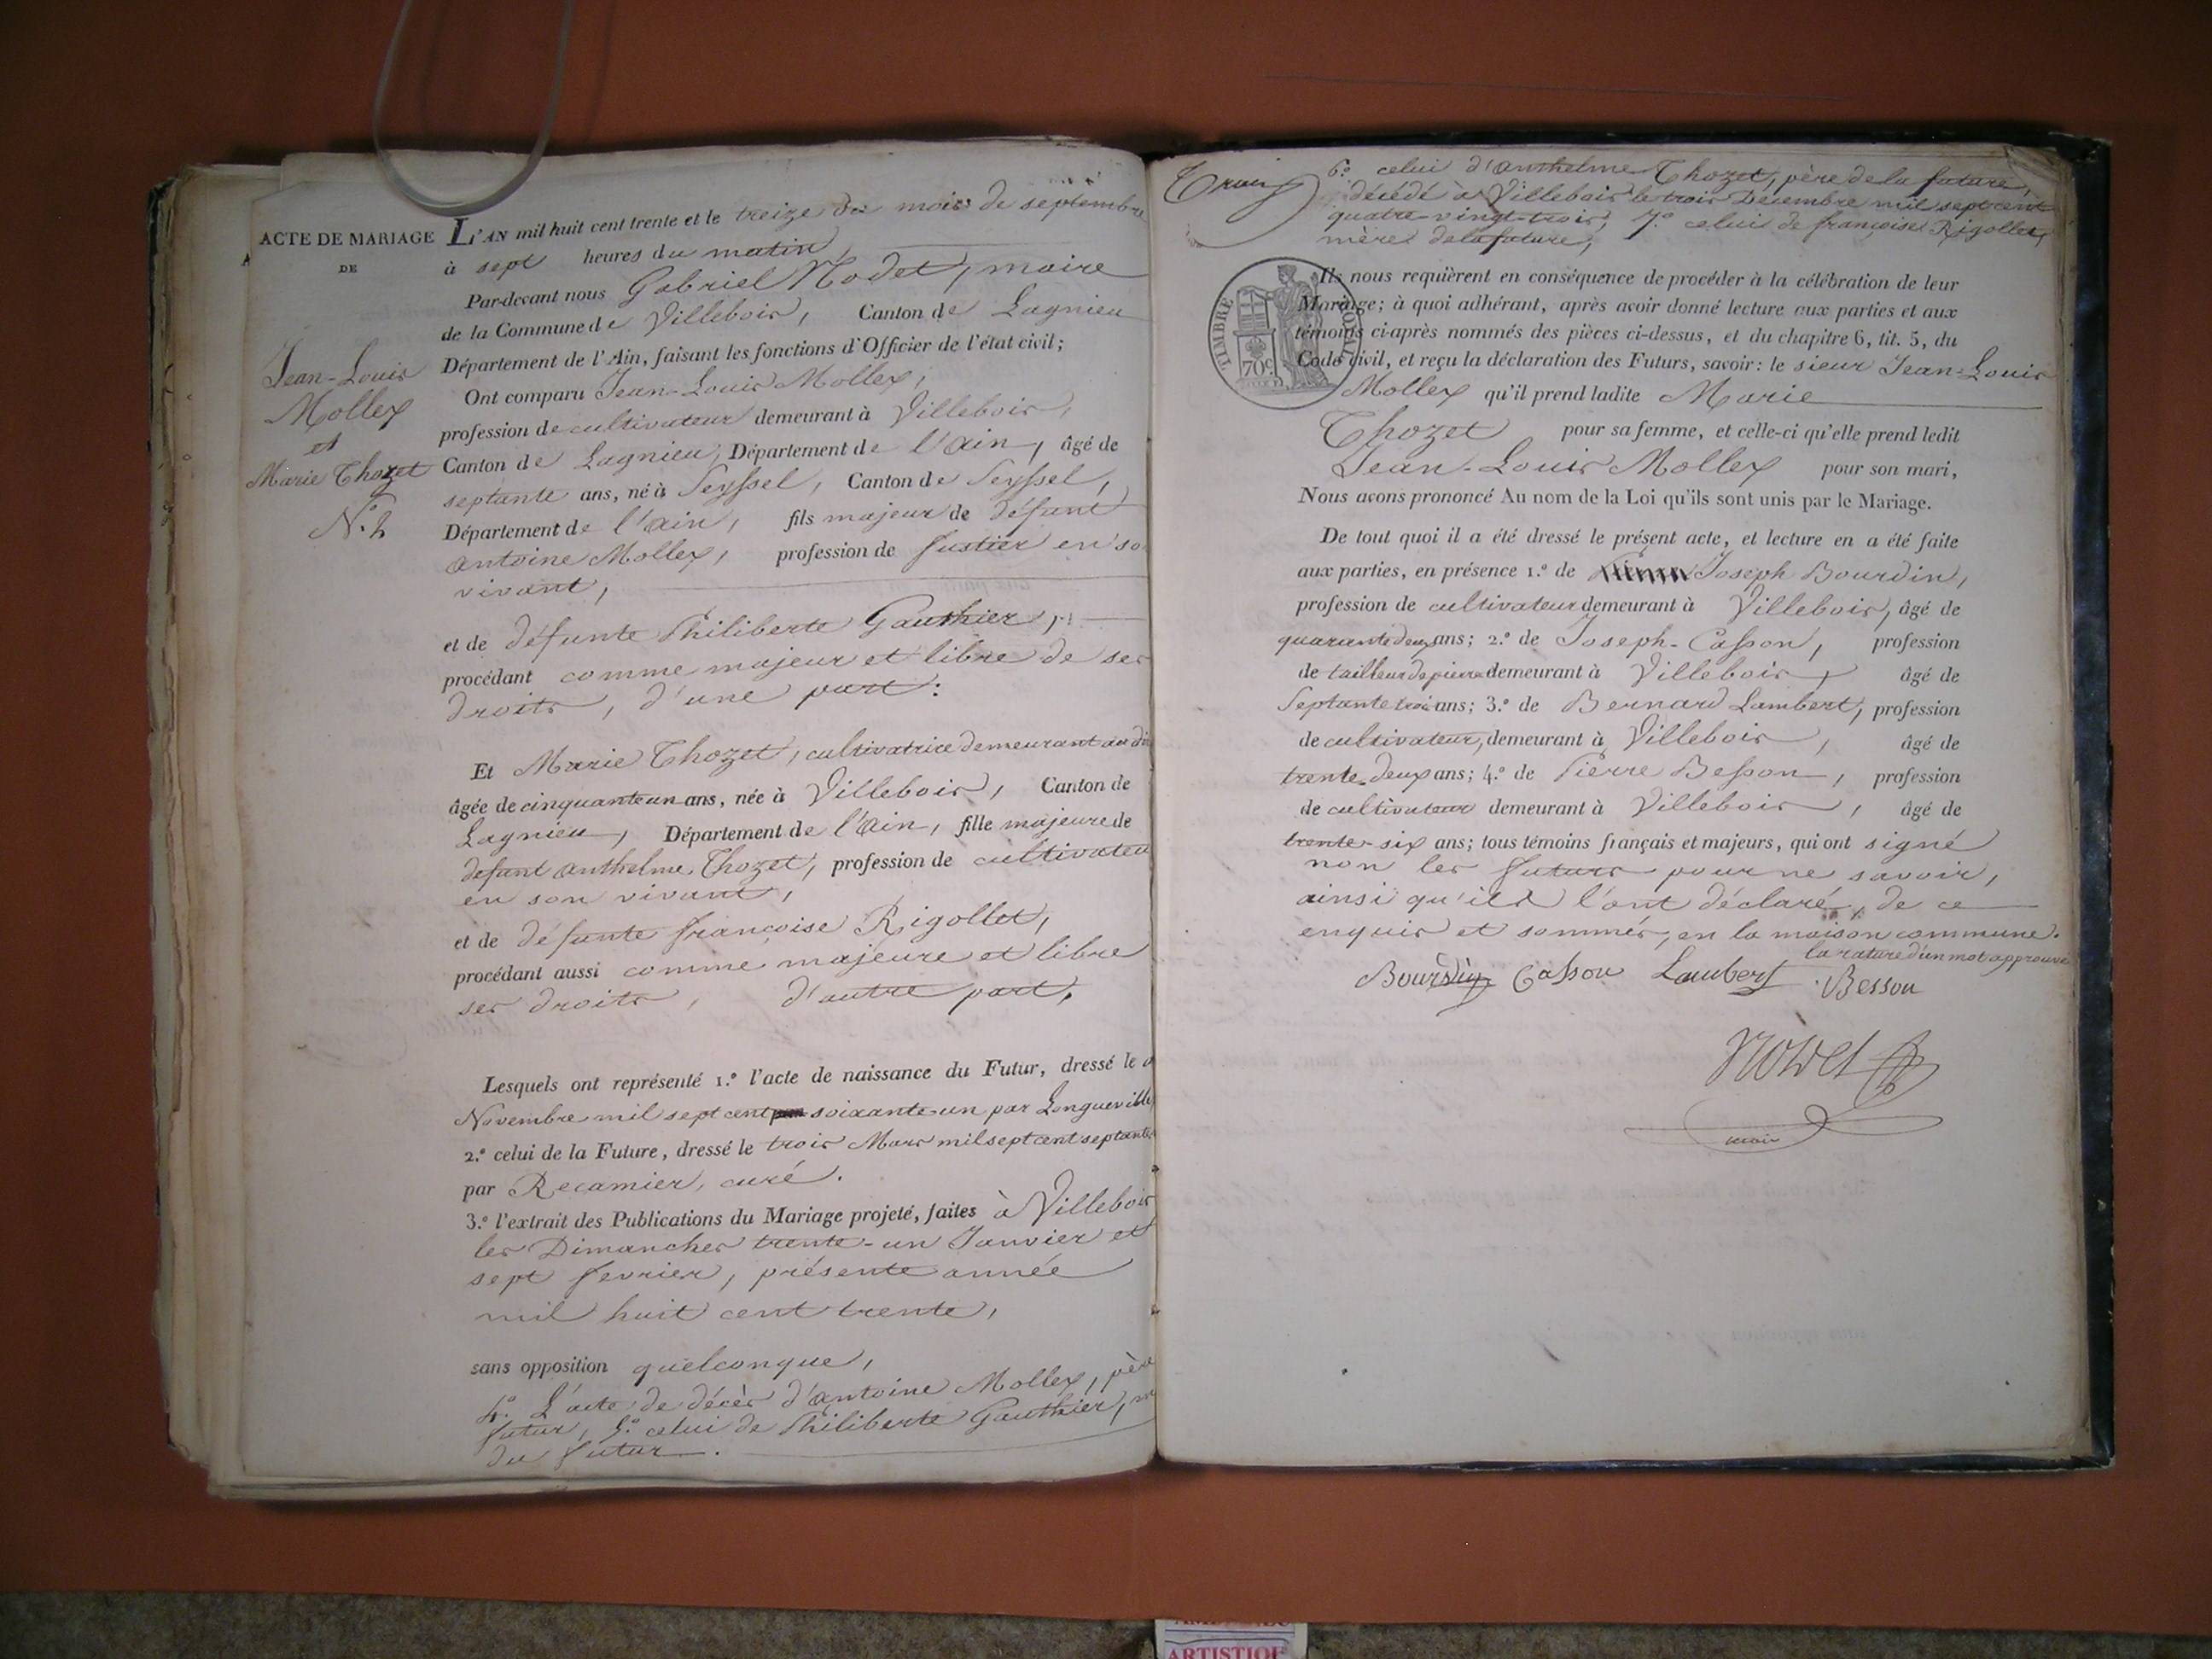 ACTE DE MARIAGE
DE
Jean-Louis
Mollex
et
Marie Thozet
N.º 2
L'AN mil huit cent trente et le treize du mois de septembre
à sept heures du matin
Par-devant nous Gabriel Nodet, maire
de la Commune de Villebois, Canton de Lagnieu
Département de l'Ain, faisant les fonctions d'Officier de l'état civil;
Ont comparu Jean-Louis Mollex,
profession de cultivateur demeurant à Villebois,
Canton de Lagnieu, Département de l'ain, âgé de
septante ans, né à Seyssel, Canton de Seyssel,
Département de l'ain, fils majeur de défunt
antoine Mollex, profession de fustier en so
vivant,
et de défunte Philiberte Gauthier,
procédant comme majeur et libre de ses
droits, d'une part:
Et Marie Thozet, cultivatrice demeurant au dit
âgée de cinquante un ans, née à Villebois, Canton de
Lagnieu, Département de l'ain, fille majeure de
defunt anthelme Thozet, profession de cultivateu
en son vivant,
et de défunte françoise Rigollet,
procédant aussi comme majeure et libre
ses droits, d'autre part,
Lesquels ont représenté 1.º l'acte de naissance du Futur, dressé le
Novembre mil sept cent soixante-un par Longueville
2.º celui de la Future, dressé le trois Mars mil sept cent septante
par Recamier, curé.
3.º l'extrait des Publications du Mariage projeté, faites à Villebois
les Dimanches trente-un Janvier et
sept fevrier, présente année
mil huit cent trente,
sans opposition quelconque,
4.º L'acte de décès d'antoine Mollex, père
futur, 5.º celui de Philiberte Gauthier, m
du futur.
6.º celui d'anthelme Thozet, père de la future,
décédé à Villebois le trois Décembre mil sept cent
quatre-vingt-trois, 7.º celui de françoise Rigollet,
mère de la future,
TIMBRE ROYAL
70c.
Ils nous requièrent en conséquence de procéder à la célébration de leur
Mariage; à quoi adhérant, après avoir donné lecture aux parties et aux
témoins ci-après nommés des pièces ci-dessus, et du chapitre 6, tit. 5, du
Code civil, et reçu la déclaration des Futurs, savoir: le sieur Jean-Louis
Mollex qu'il prend ladite Marie
Thozet pour sa femme, et celle-ci qu'elle prend ledit
Jean-Louis Mollex pour son mari,
Nous avons prononcé Au nom de la Loi qu'ils sont unis par le Mariage.
De tout quoi il a été dressé le présent acte, et lecture en a été faite
aux parties, en présence 1.º de Joseph Bourdin,
profession de cultivateur demeurant à Villebois, âgé de
quarante deux ans; 2.º de Joseph-Casson, profession
de tailleur de pierre demeurant à Villebois, âgé de
Septante trois ans; 3.º de Bernard Lambert, profession
de cultivateur, demeurant à Villebois, âgé de
trente-deux ans; 4.º de Pierre Besson, profession
de cultivateur demeurant à Villebois, âgé de
trente-six ans; tous témoins français et majeurs, qui ont signé
non les futurs pour ne savoir,
ainsi qu'ils l'ont déclaré, de ce
enquis et sommés, en la maison commune.
la rature d'un mot approuvé
Bourdin Casson Lambert Besson
Nodet
maire
ARTISTIQUE